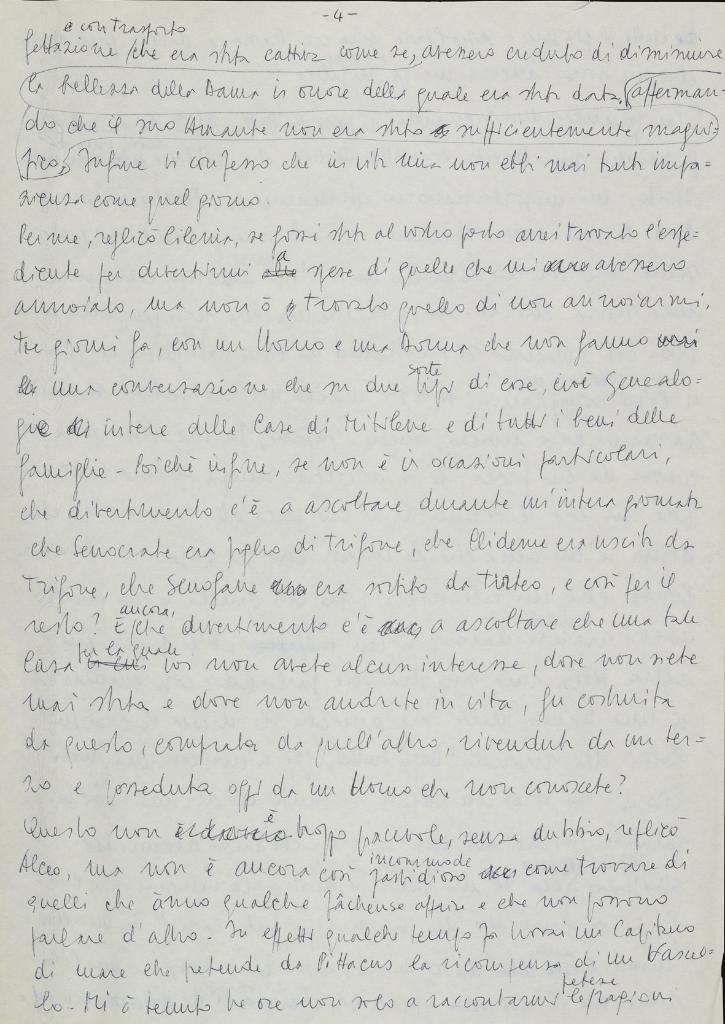 -4-
e contrasporto
gettazione / che era stata cattiva come se, avessero creduto di diminuire
la bellezza della Dama in onore della quale era stata data, afferman-
do che il suo Amante non era stato sufficientemente magni-
fico, Infine vi confesso che in vita mia non ebbi mai tanta impa-
zienza come quel giorno.
Per me, replicò Cilenia, se fossi stata al vostro posto avrei trovato l'espe-
diente per divertirmi a spese di quelle che mi avessero
annoiato, ma non ò trovato quello di non annoiarmi,
tre giorni fa, con un Uomo e una Donna che non fanno
una conversazione che su due sorte di cose, cioè Genealo-
gie intere delle Case di Mitilene e di tutti i beni delle
famiglie - Poiché infine, se non è in occasioni particolari,
che divertimento c'è a ascoltare durante un'intera giornata
che Senocrate era figlio di Trifone, che Clideme era uscito da
Trifone, che Senofane era sortito da Tirteo, e così per il
resto? E ancora, / che divertimento c'è a ascoltare che una tale
Casa per la quale voi non avete alcun interesse, dove non siete
mai stata e dove non andrete in vita, fu costruita
da questo, comprata da quell'altro, rivenduta da un ter-
zo e posseduta oggi da un Uomo che non conoscete?
Questo non è troppo piacevole, senza dubbio, replicò
Alceo, ma non è ancora così incommode fastidioso come trovare di
quelli che ànno qualche fâcheuse affaire e che non possono
parlare d'altro - In effetti qualche tempo fa trovai un Capitano
di mare che pretende da Pittacus la ricompensa di un Vascel-
lo - Mi à tenuto tre ore non solo a raccontarmi le pretese ragioni